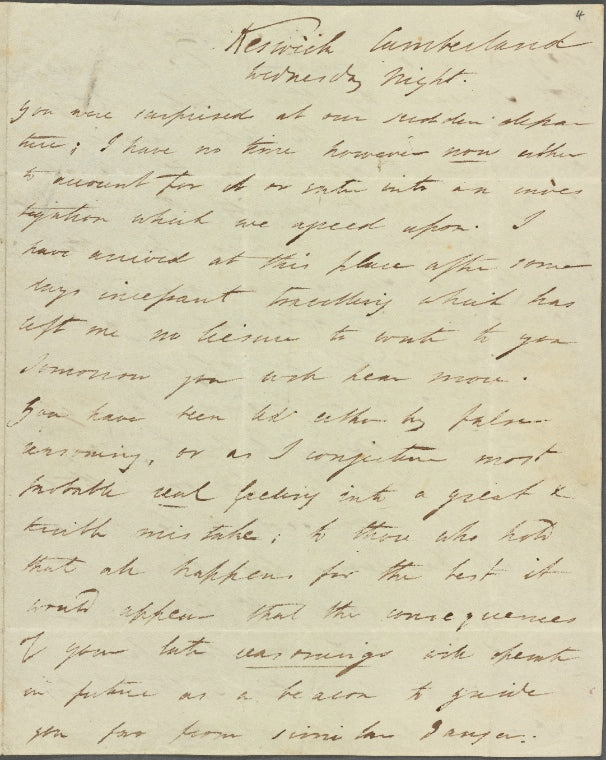 4
Keswick Cumberland
Wednesday Night.
You were surprised at our sudden depar
ture; I have no time however now either
to account for it or enter into an inves
tigation which we agreed upon. I
have arrived at this place after some
days incessant travelling which has
left me no leisure to write to you
Tomorrow you will hear more.
You have been led either by false
reasoning, or as I conjecture most
probable real feeling into a great &
terrible mistake; to those who hold
that all happens for the best it
would appear that the consequences
of your late reasonings will operate
in future as a beacon to guide
you far from similar danger.